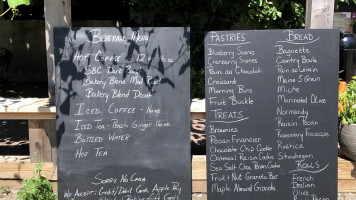 Beverage Menu
Hot Coffee 12 oz
SBC Dark Roast
Bakery Blend Med Roast
Bakery Blend Decaf
Iced Coffee
Iced Tea - Peach Ginger
Bottled Water
Hot Tea
Sorry No Cash
We Accept: Credit/Debit Card, Apple Pay
Gift Cards
PASTRIES
Blueberry Scones
Cranberry Scones
Pain au Chocolat
Croissant
Morning Buns
Fruit Buckle
TREATS
Brownies
Pecan Financier
Chocolate Chip Cookie
Oatmeal Raisin Cookie
Sea Salt Choc Cookie
Fruit Nut Granola
Maple Almond Granola
BREAD
Baguette
Country Boule
Pain au Levain
Maine 5 Grain
Miche
Marinated Olive
Normandy
Raisin Pecan
Rosemary Focaccia
Rustica
Skowhegan
ROLLS
French
Italian
Olive